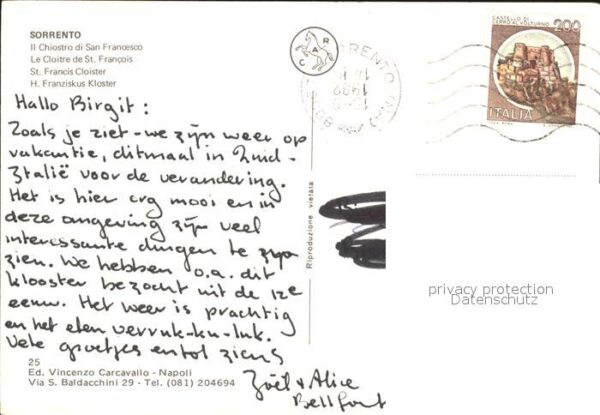 SORRENTO
Il Chiostro di San Francesco
Le Cloitre de St. François
St. Francis Cloister
H. Franziskus Kloster
Hallo Birgit:
Zoals je ziet - we zijn weer op
vakantie, ditmaal in Zuid-
Italië voor de verandering.
Het is hier erg mooi en in
deze omgeving zijn veel
interessante dingen te zijn
zien. We hebben o.a. dit
klooster bezocht uit de 12e
eeuw. Het weer is prachtig
en het eten verruk-ku-luk.
Vele groetjes en tot ziens
Joël + Alice
Bellfort
25
Ed. Vincenzo Carcavallo - Napoli
Via S. Baldacchini 29 - Tel. (081) 204694
Riproduzione vietata
CAR
SORRENTO (NA)
1982
CASTELLO DI
CERRO AL VOLTURNO
200
ITALIA
privacy protection
Datenschutz